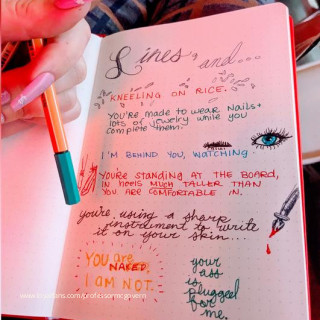 Lines, and...
KNEELING ON RICE.
YOU'RE MADE TO WEAR NAILS +
LOTS OF JEWELRY WHILE YOU
COMPLETE THEM.
I'M BEHIND YOU, WATCHING.
YOU'RE STANDING AT THE BOARD,
IN HEELS MUCH TALLER THAN
YOU ARE COMFORTABLE IN.
you're using a sharp
instrument to write
it on your skin...
YOU are
NAKED.
I AM NOT.
your
ass
is
plugged
for
me.